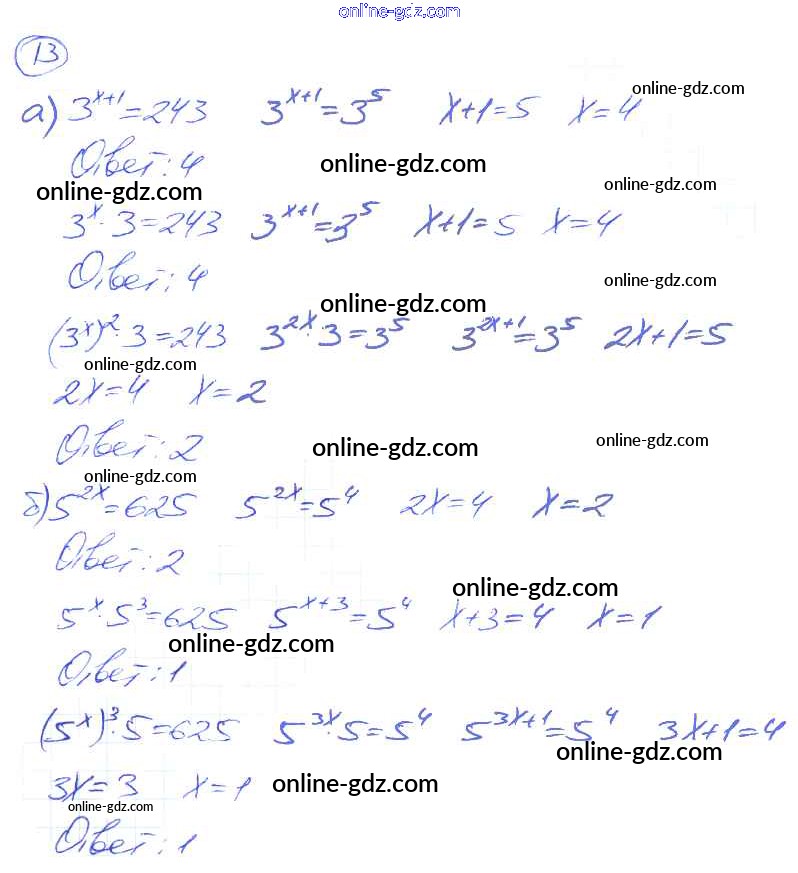 online-gdz.com
13
а) 3^{x+1}=243   3^{x+1}=3^5   x+1=5   x=4
online-gdz.com
Ответ: 4
online-gdz.com
online-gdz.com
online-gdz.com
3^x·3=243   3^{x+1}=3^5   x+1=5   x=4
Ответ: 4
online-gdz.com
online-gdz.com
(3^x)^2·3=243   3^{2x}·3=3^5   3^{2x+1}=3^5   2x+1=5
online-gdz.com
2x=4   x=2
Ответ: 2
online-gdz.com
online-gdz.com
online-gdz.com
б) 5^{2x}=625   5^{2x}=5^4   2x=4   x=2
Ответ: 2
online-gdz.com
5^x·5^3=625   5^{x+3}=5^4   x+3=4   x=1
online-gdz.com
Ответ: 1
(5^x)^3·5=625   5^{3x}·5=5^4   5^{3x+1}=5^4   3x+1=4
online-gdz.com
3x=3   x=1
online-gdz.com
online-gdz.com
Ответ: 1